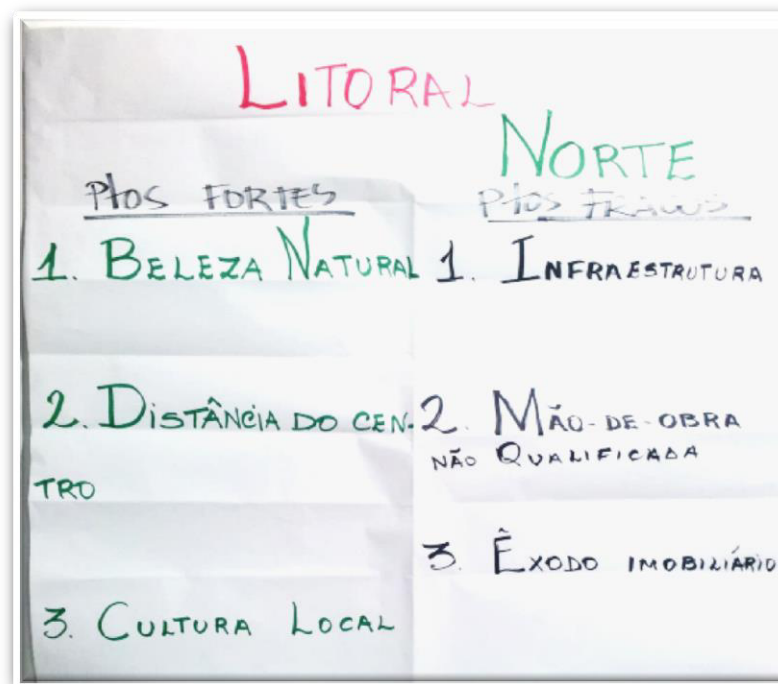 LITORAL
NORTE
Ptos FORTES
1. BELEZA NATURAL
2. DISTÂNCIA DO CEN-
TRO
3. CULTURA LOCAL
Ptos FRACOS
1. INFRAESTRUTURA
2. MÃO-DE-OBRA
NÃO QUALIFICADA
3. ÊXODO IMOBILIÁRIO